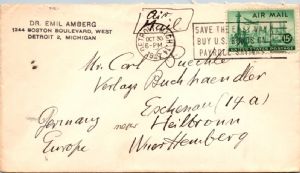 DR. EMIL AMBERG
1244 BOSTON BOULEVARD, WEST
DETROIT 2, MICHIGAN
Air
Mail
OCT 30
6-PM
SAVE THE
BUY U.S.
PAYROLL
AIR MAIL
15¢
Mr. Carl Buechle
Verlags Buchhaendler
Eschenau (14a)
Germany near Heilbronn
Europe Wuerttemberg